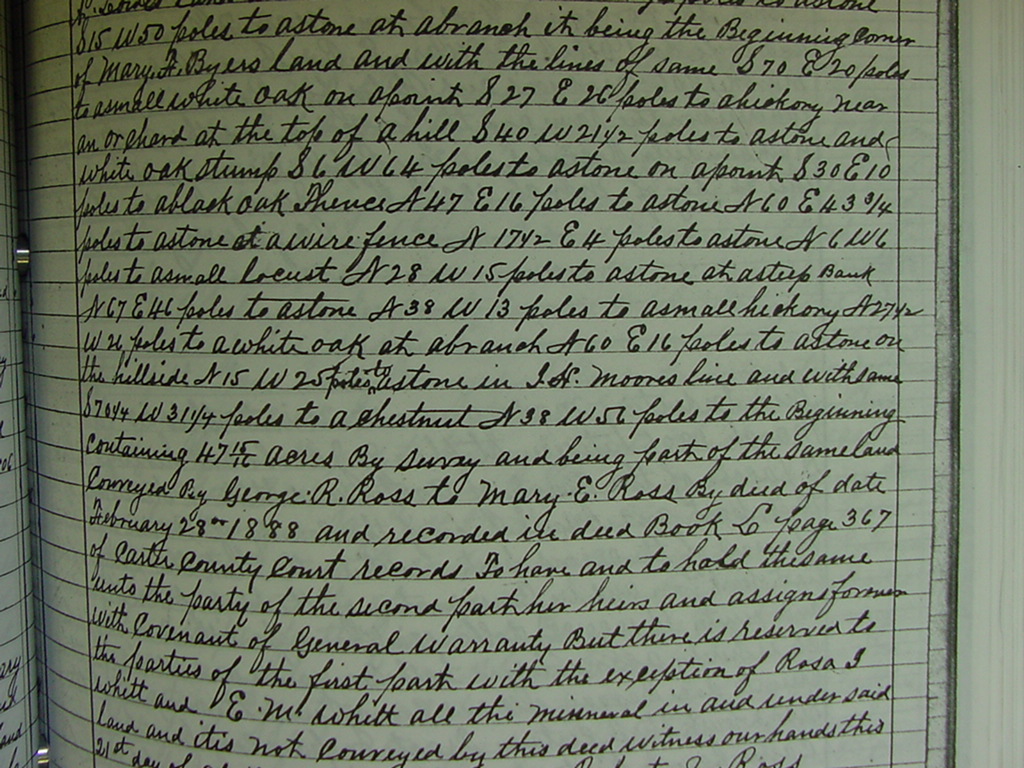 poles to astone
S15 W50 poles to astone at abranch it being the Beginning corner
of Mary. F. Byers land and with the lines of same S70 E20 poles
to asmall white oak on apoint S 27 E 26 poles to ahickory near
an orchard at the top of a hill S40 W 21 1/2 poles to astone and
white oak stump S6 W64 poles to astone on apoint S30 E10
poles to ablack oak Thence N47 E16 poles to astone N60 E 43 3/4
poles to astone at a wire fence N 17 1/2 E4 poles to astone N6 W6
poles to asmall locust N28 W 15 poles to astone at asteep Bank
N67 E46 poles to astone N38 W 13 poles to asmall hickory N27 1/2
W 26 poles to a white oak at abranch N60 E16 poles to astone on
the hillside N15 W 25 poles to astone in J. H. Moores line and with same
S70 1/4 W 31 1/4 poles to a chestnut N38 W56 poles to the Beginning
Containing 47 15/16 acres By survay and being part of the same land
Conveyed By George. R. Ross to Mary. E. Ross By deed of date
February 28th 1888 and recorded in deed Book L page 367
of Carter County Court records To have and to hold the same
unto the party of the second part her heirs and assigns forever
with Covenant of General Warranty But there is reserved to
the parties of the first part with the exception of Rosa J
Whitt and E. M. Whitt all the minneral in and under said
land and it is not conveyed by this deed witness our hands this
21st day of
Ross